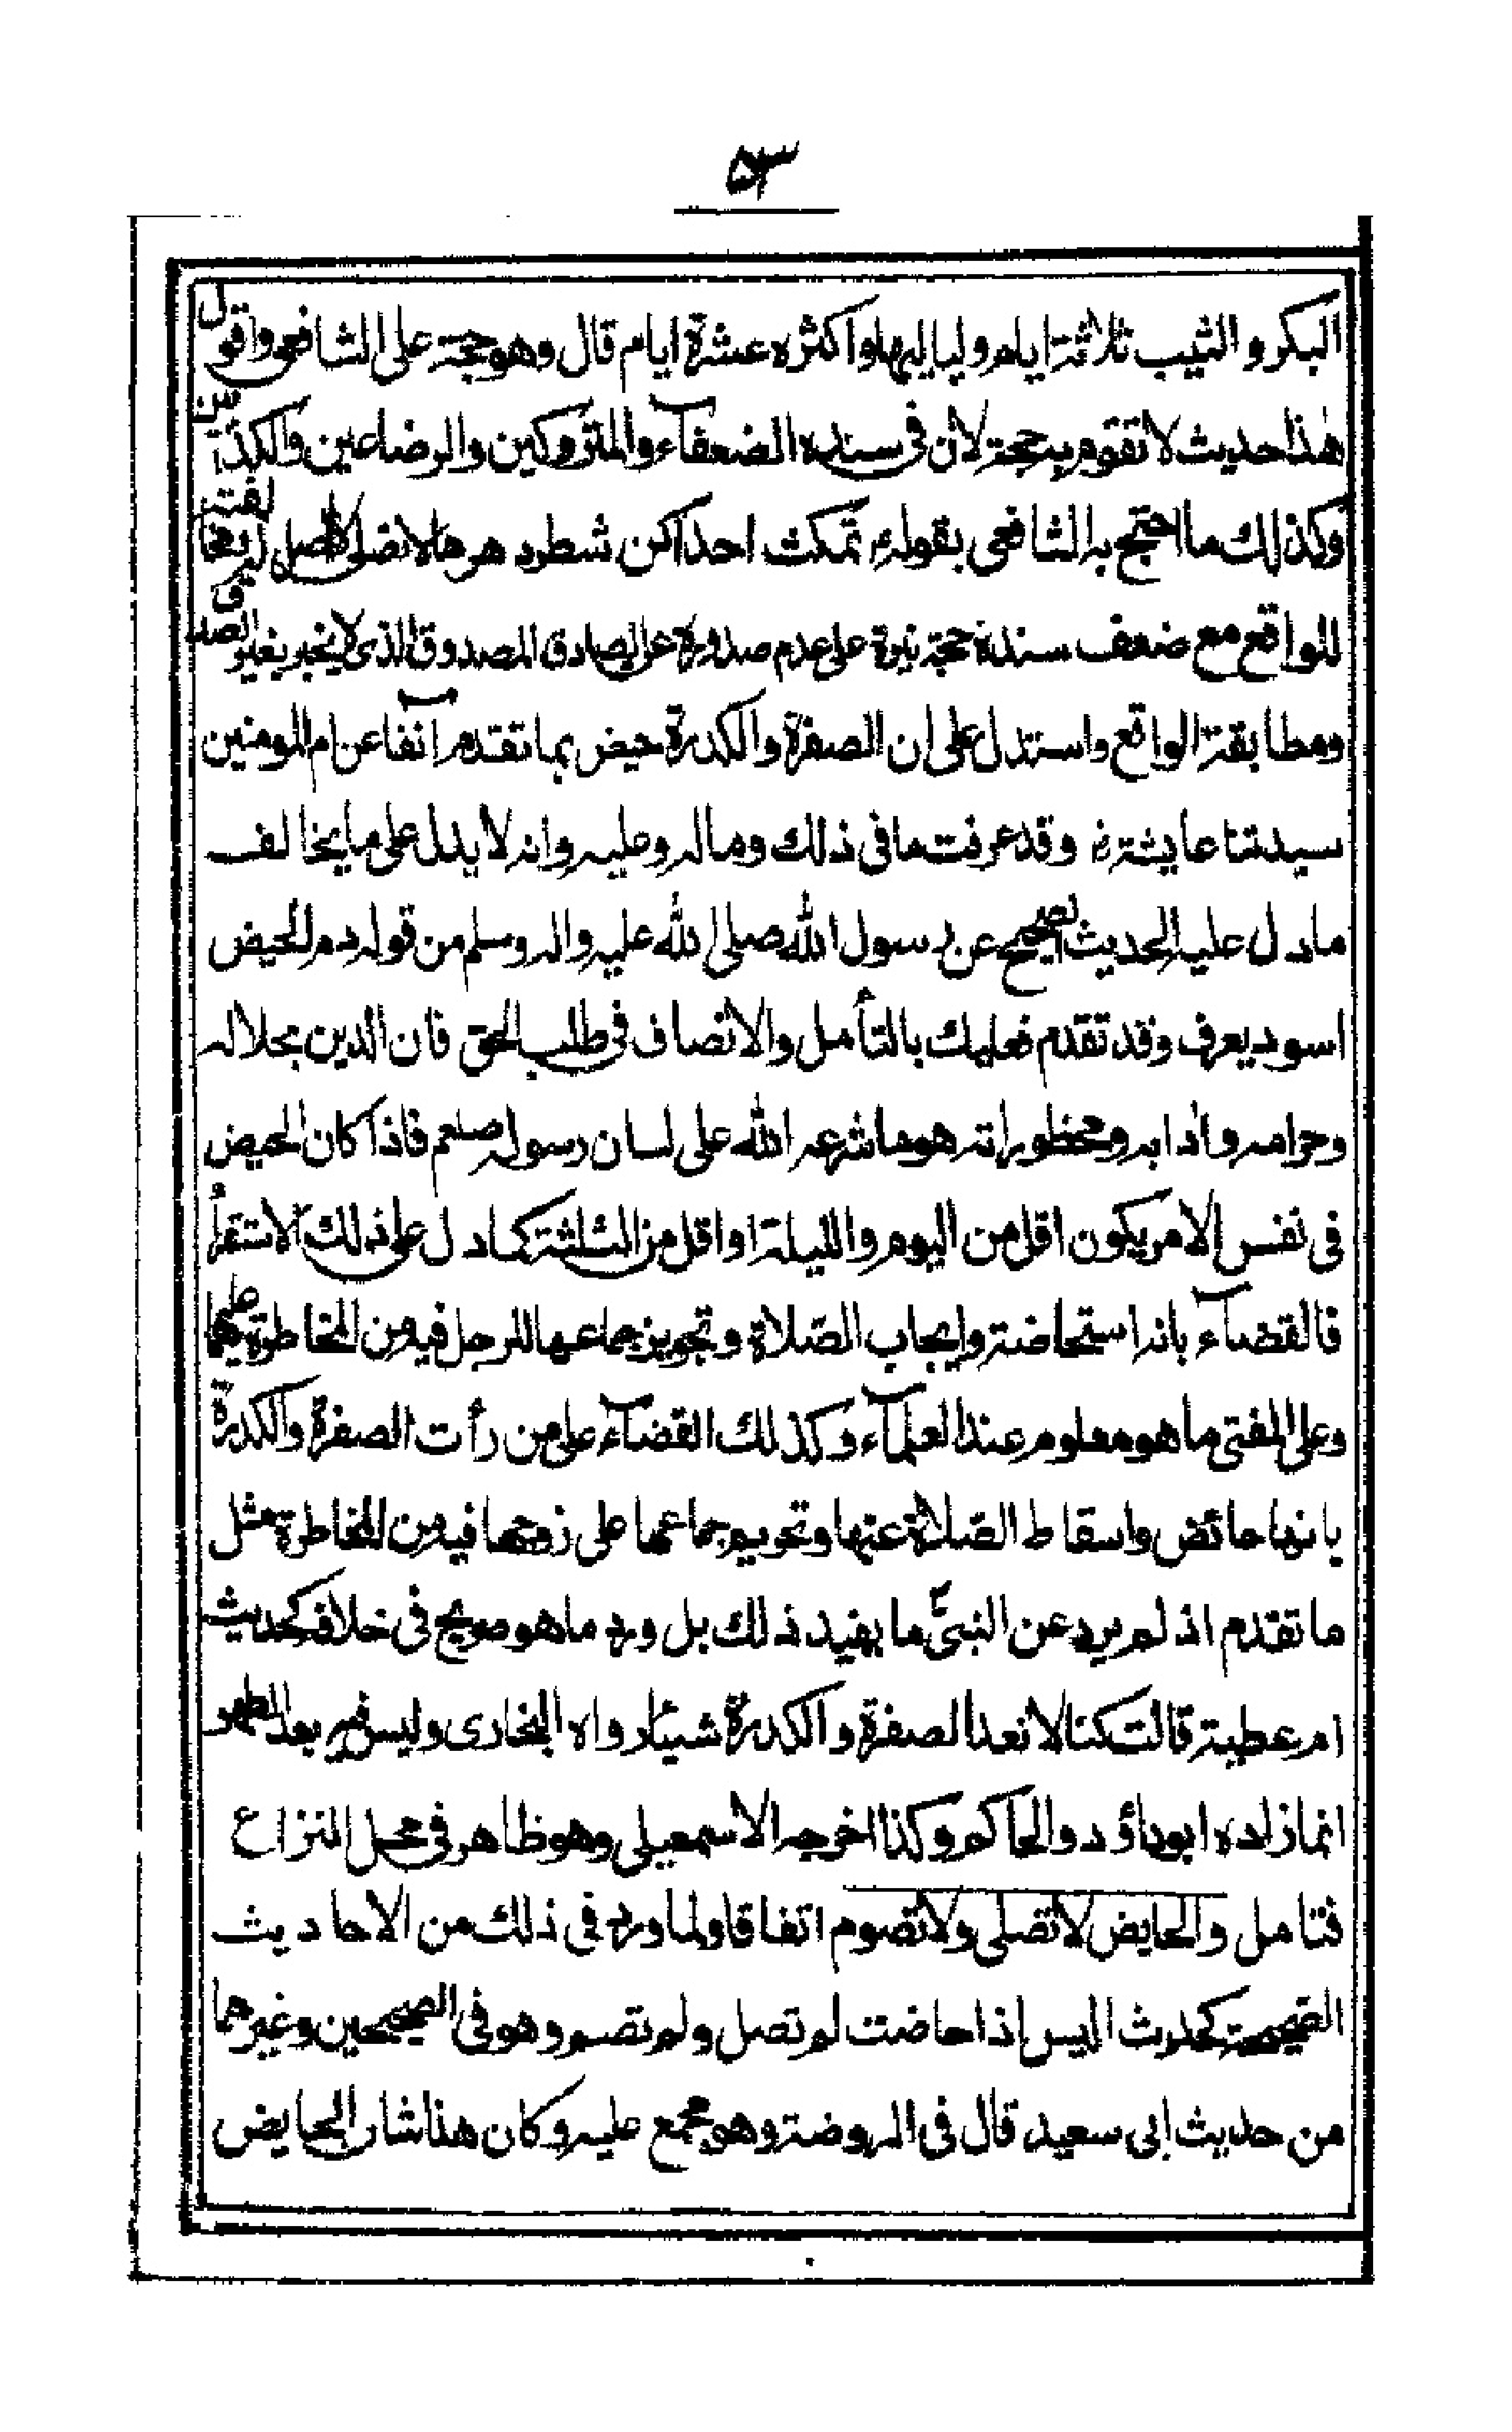 ٥٣
البكر والثيب ثلاثة ايام ولياليها واكثره عشرة ايام قال وهو حجة على الشافعي واقول
هذا حديث لا تقوم به حجة لان في سنده الضعفآء والمتروكين والوضاعين والكذابين
وكذلك ما احتج به الشافعي بقوله تمكث احداكن شطر دهرها لا تصلي لا اصل له
للواقع مع ضعف سنده حجة نيرة على عدم صدوره عن الصادق المصدوق الذي لا يخبر بغير الصدق
ومطابقة الواقع واستدل على ان الصفرة والكدرة حيض بما تقدم آنفا عن ام المومنين
سيدتنا عايشة رض وقد عرفت ما في ذلك وما له وعليه وانه لا يدل على ما يخالف
ما دل عليه الحديث الصحيح عن رسول الله صلى الله عليه واله وسلم من قوله دم الحيض
اسود يعرف وقد تقدم فعليك بالتأمل والانصاف في طلب الحق فان الدين بحلاله
وحرامه وادابه ومحظوراته هو ما شرعه الله على لسان رسوله صلعم فاذا كان الحيض
في نفس الامر يكون اقل من اليوم والليلة او اقل من الثلثة كما دل على ذلك الاستقرأ
فالقضآء بانه استحاضة وايجاب الصّلاة وتجويز جماعها للرجل فيه من المخاطرة عليهما
وعلى المفتي ما هو معلوم عند العلمآء وكذلك القضآء على من رأت الصفرة والكدرة
بانها حائض واسقاط الصّلاة عنها وتحريم جماعها على زوجها فيه من المخاطرة مثل
ما تقدم اذ لم يرد عن النبيّ ما يفيد ذلك بل ورد ما هو صريح في خلافه كحديث
ام عطية قالت كنا لا نعد الصفرة والكدرة شيئا رواه البخاري وليس فيه بعد الطهر
انما زاده ابوداؤد والحاكم وكذا اخرجه الاسمعيلي وهو ظاهر في محل النزاع
فتامل والحايض لا تصلي ولا تصوم اتفاقا ولما ورد في ذلك من الاحاديث
الصحيحة كحديث اليس اذا حاضت لم تصل ولم تصم وهو في الصحيحين وغيرهما
من حديث ابي سعيد قال في الروضة وهو مجمع عليه وكان هذا شان الحايض